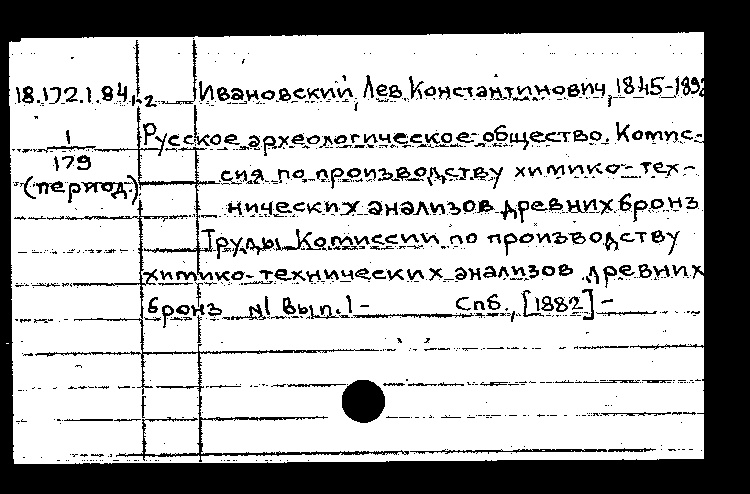 18.172.1.84,1-2 Ивановский, Лев Константинович, 1845-1892
1/179 Русское археологическое общество. Комис-
(период.) сия по производству химико-тех-
нических анализов древних бронз
Труды Комиссии по производству
химико-технических анализов древних
бронз N1 Вып. 1 - Спб., [1882] -